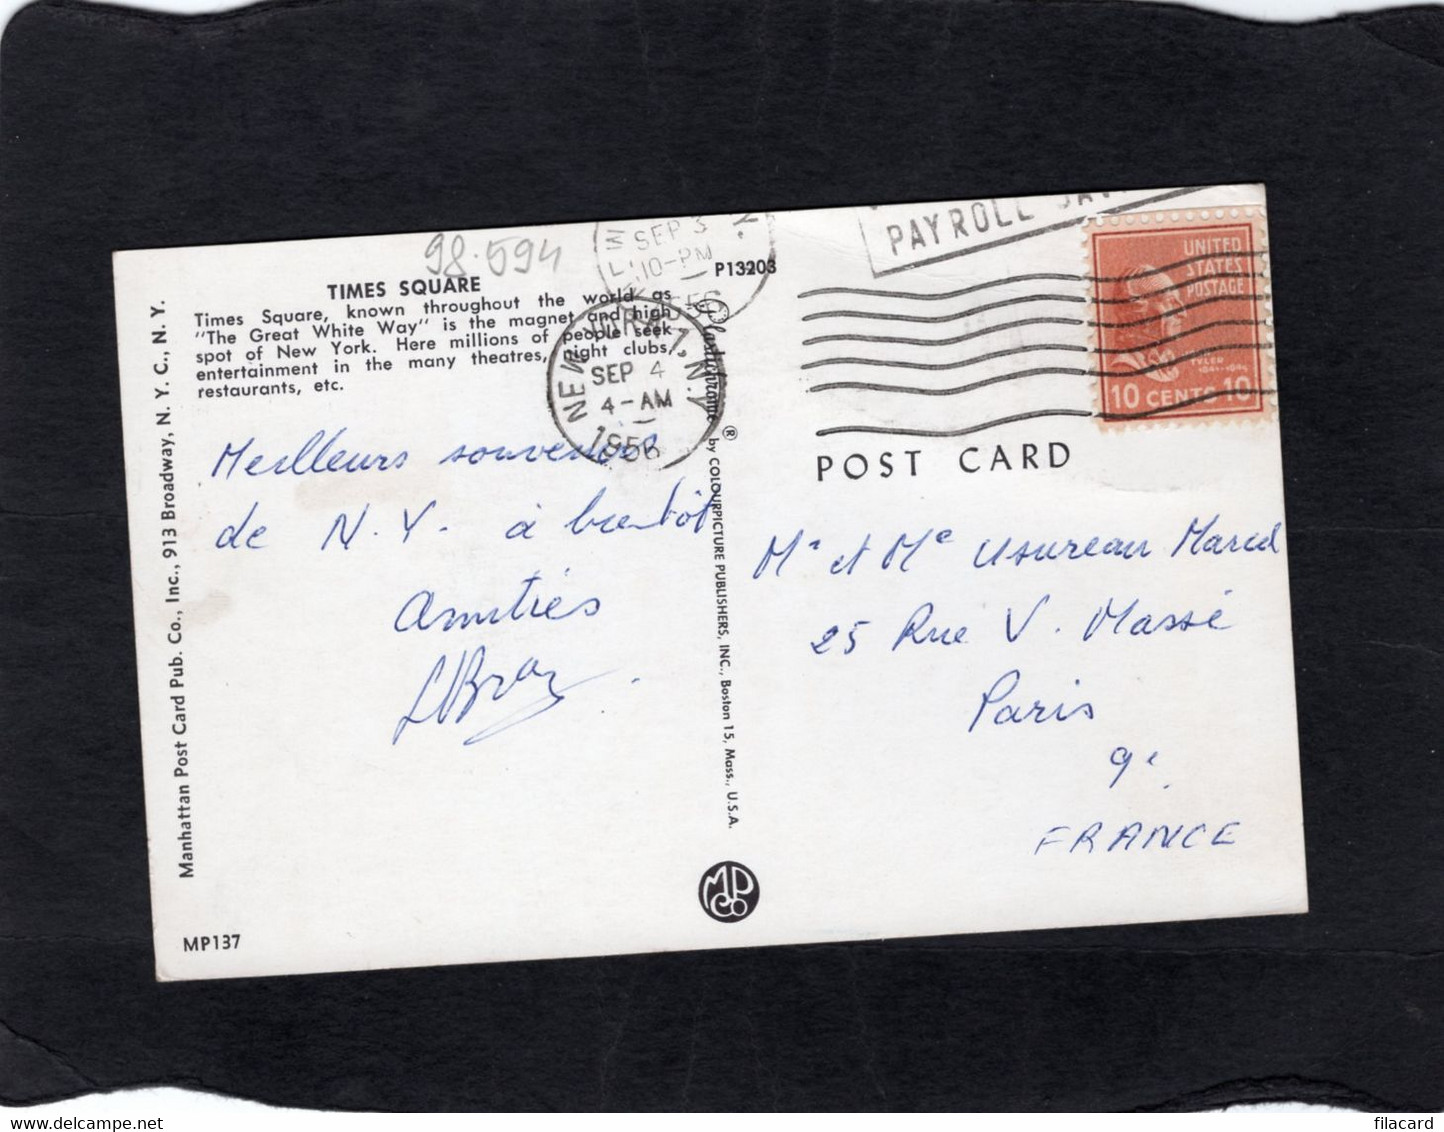 98.594
SEP 3
10-PM
P13203
PAYROLL
UNITED
STATES
POSTAGE
TYLER
1841-1845
10 CENTS 10
TIMES SQUARE
Times Square, known throughout the world as
"The Great White Way" is the magnet and high
spot of New York. Here millions of people seek
entertainment in the many theatres, night clubs,
restaurants, etc.
NEW YORK 1, N.Y.
SEP 4
4-AM
1956
Meilleurs souvenirs
de N.Y. à bientôt
Amitiés
Plastichrome ® by COLOURPICTURE PUBLISHERS, INC., Boston 15, Mass., U.S.A.
POST CARD
Mr et Me Usureau Marcel
25 Rue V. Massé
Paris
9e
FRANCE
Manhattan Post Card Pub. Co., Inc., 913 Broadway, N. Y. C., N. Y.
MP Co
MP137
filacard.com